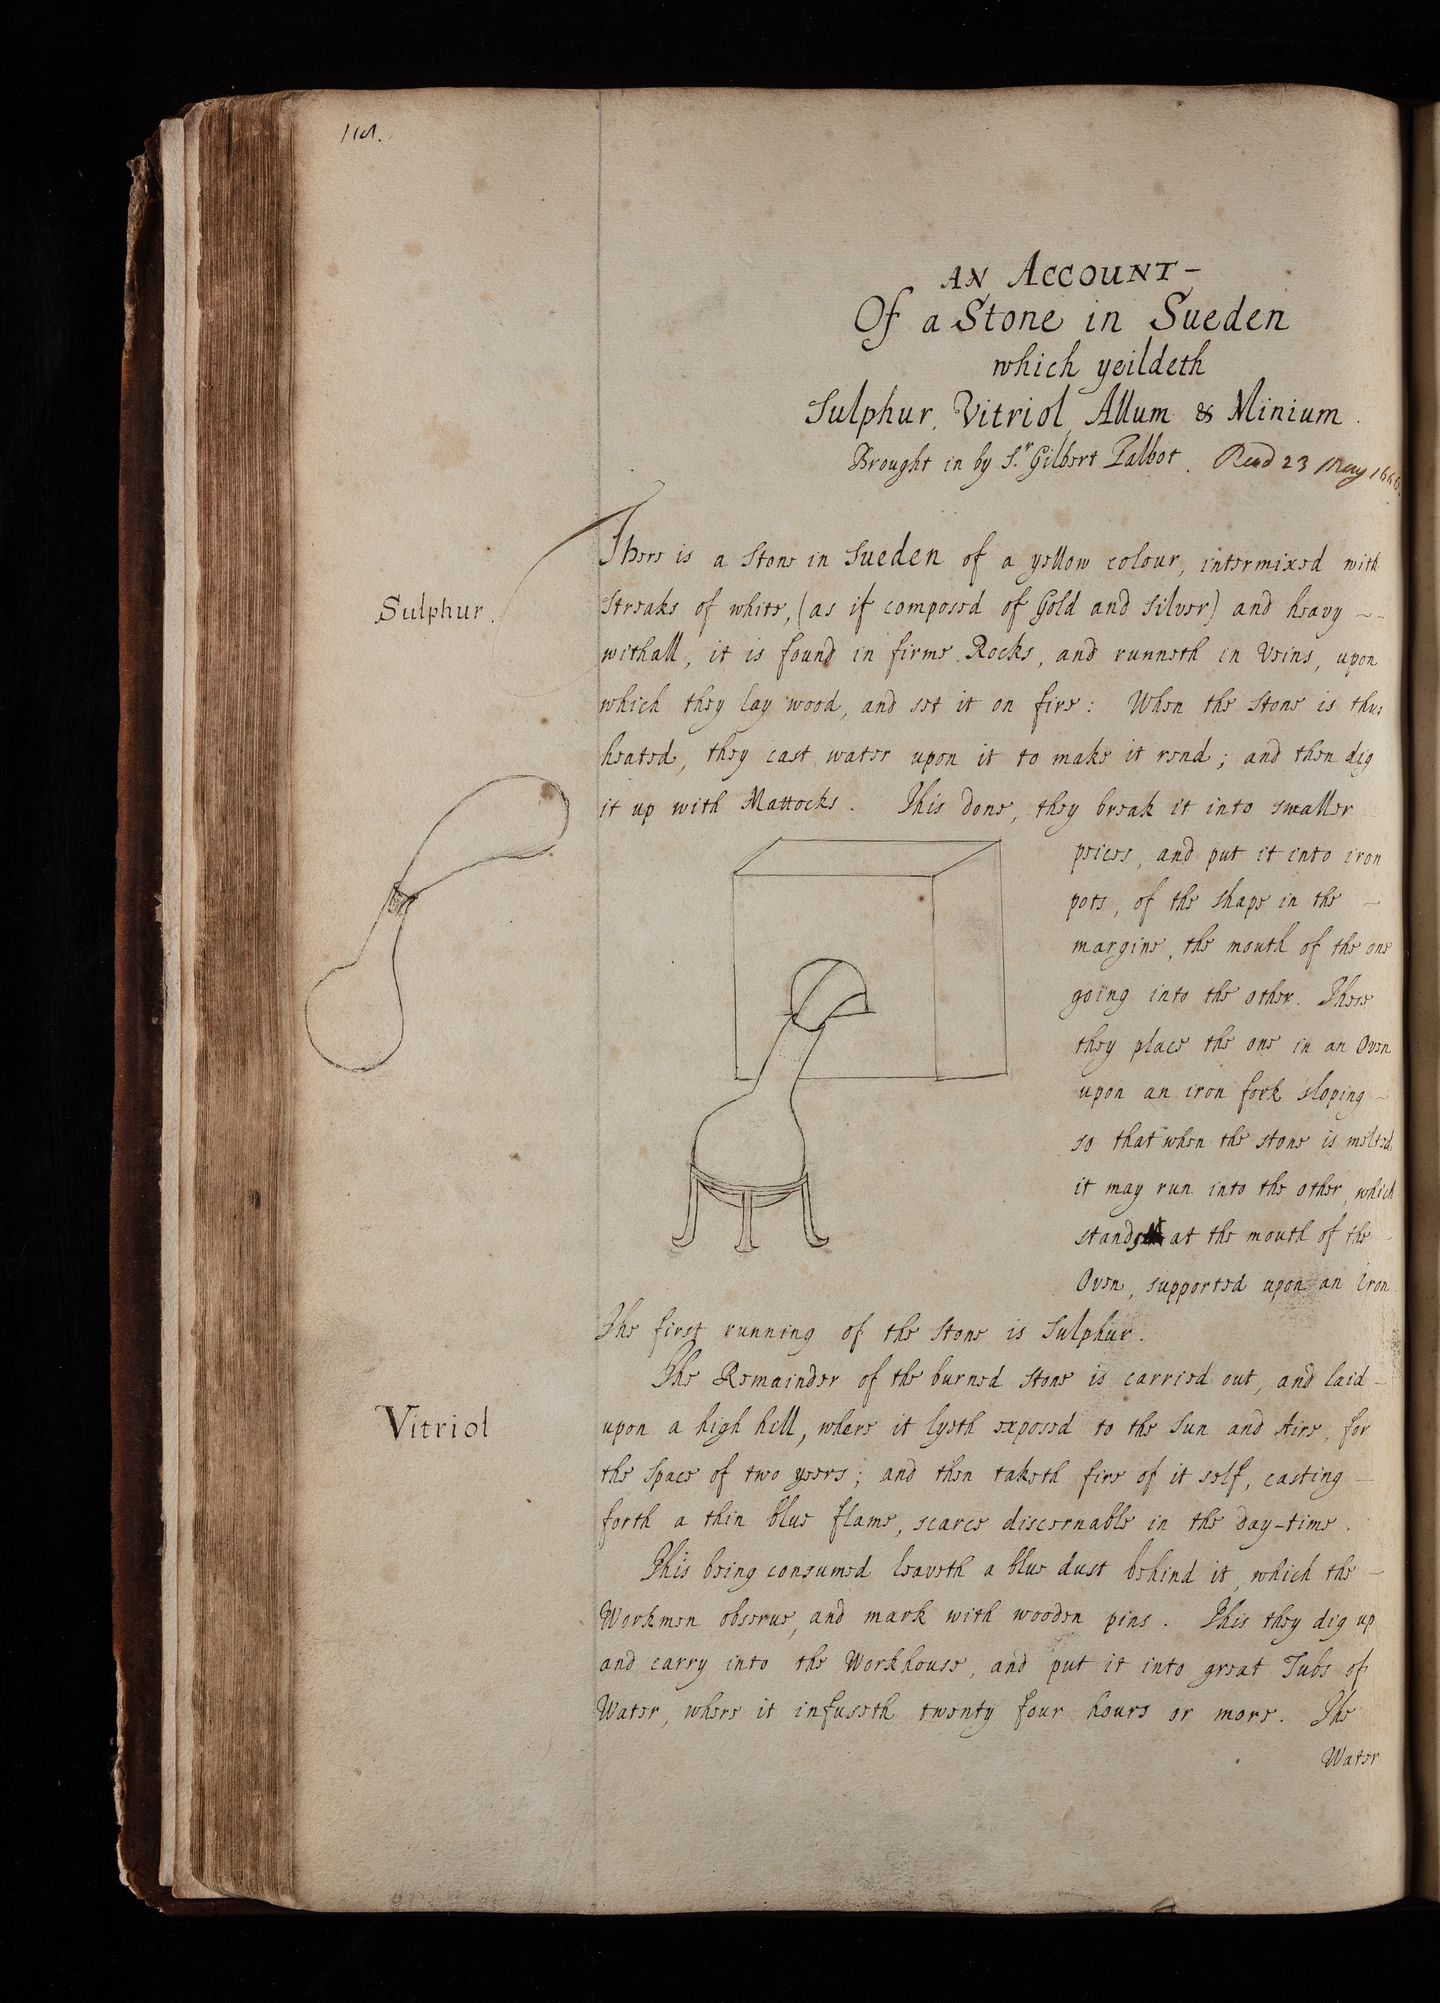 AN ACCOUNT-
Of a Stone in Sueden
which yeildeth
Sulphur, Vitriol, Allum & Minium.
Brought in by Sr. Gilbert Talbot. Read 23 May 1666.
Sulphur.
There is a Stone in Sueden of a yellow colour, intermixed with
streaks of white, (as if composed of Gold and Silver) and heavy
withall, it is found in firme Rocks, and runneth in Veins, upon
which they lay wood, and set it on fire: When the stone is thus
heated, they cast water upon it to make it rend; and then dig
it up with Mattocks. This done, they break it into smaller
peices, and put it into iron
pots, of the shape in the
margine, the mouth of the one
going into the other. These
they place the one in an Oven
upon an iron fork sloping
so that when the stone is melted
it may run into the other, which
stands at the mouth of the
Oven, supported upon an Iron
The first running of the Stone is Sulphur.
Vitriol
The Remainder of the burned stone is carried out, and laid
upon a high hill, where it lyeth exposed to the Sun and Aire, for
the space of two yeers; and then taketh fire of it self, casting
forth a thin blue flame, scarce discernable in the day-time.
This being consumed leaveth a blue dust behind it, which the
Workmen observe, and mark with wooden pins. This they dig up
and carry into the Workhouse, and put it into great Tubs of
Water, where it infuseth twenty four hours or more. The
Water